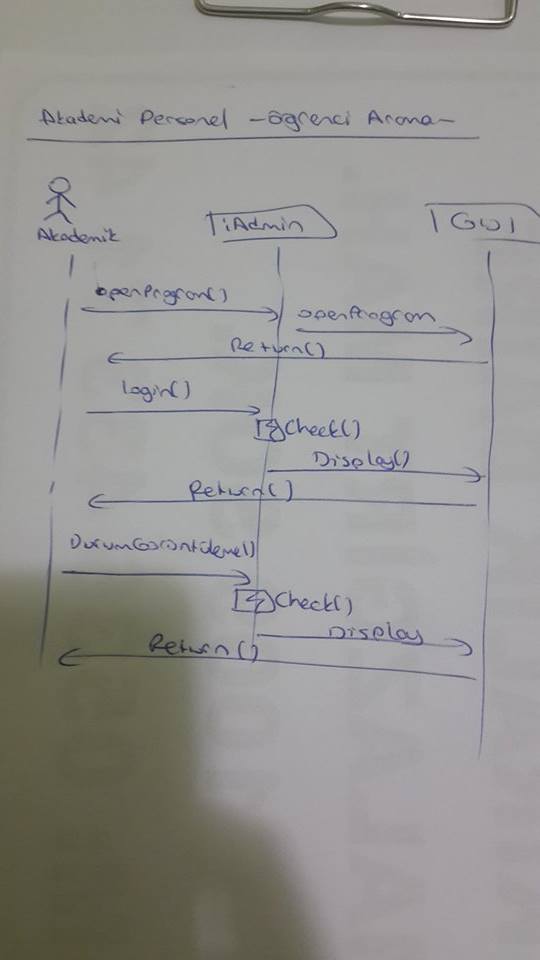 Akademi Personel -Öğrenci Arama-
Akademik
:Admin
GUI
openProgram()
openProgram
Return()
login()
Check()
Display()
Return()
DurumGörüntüleme()
Check()
Display
Return()